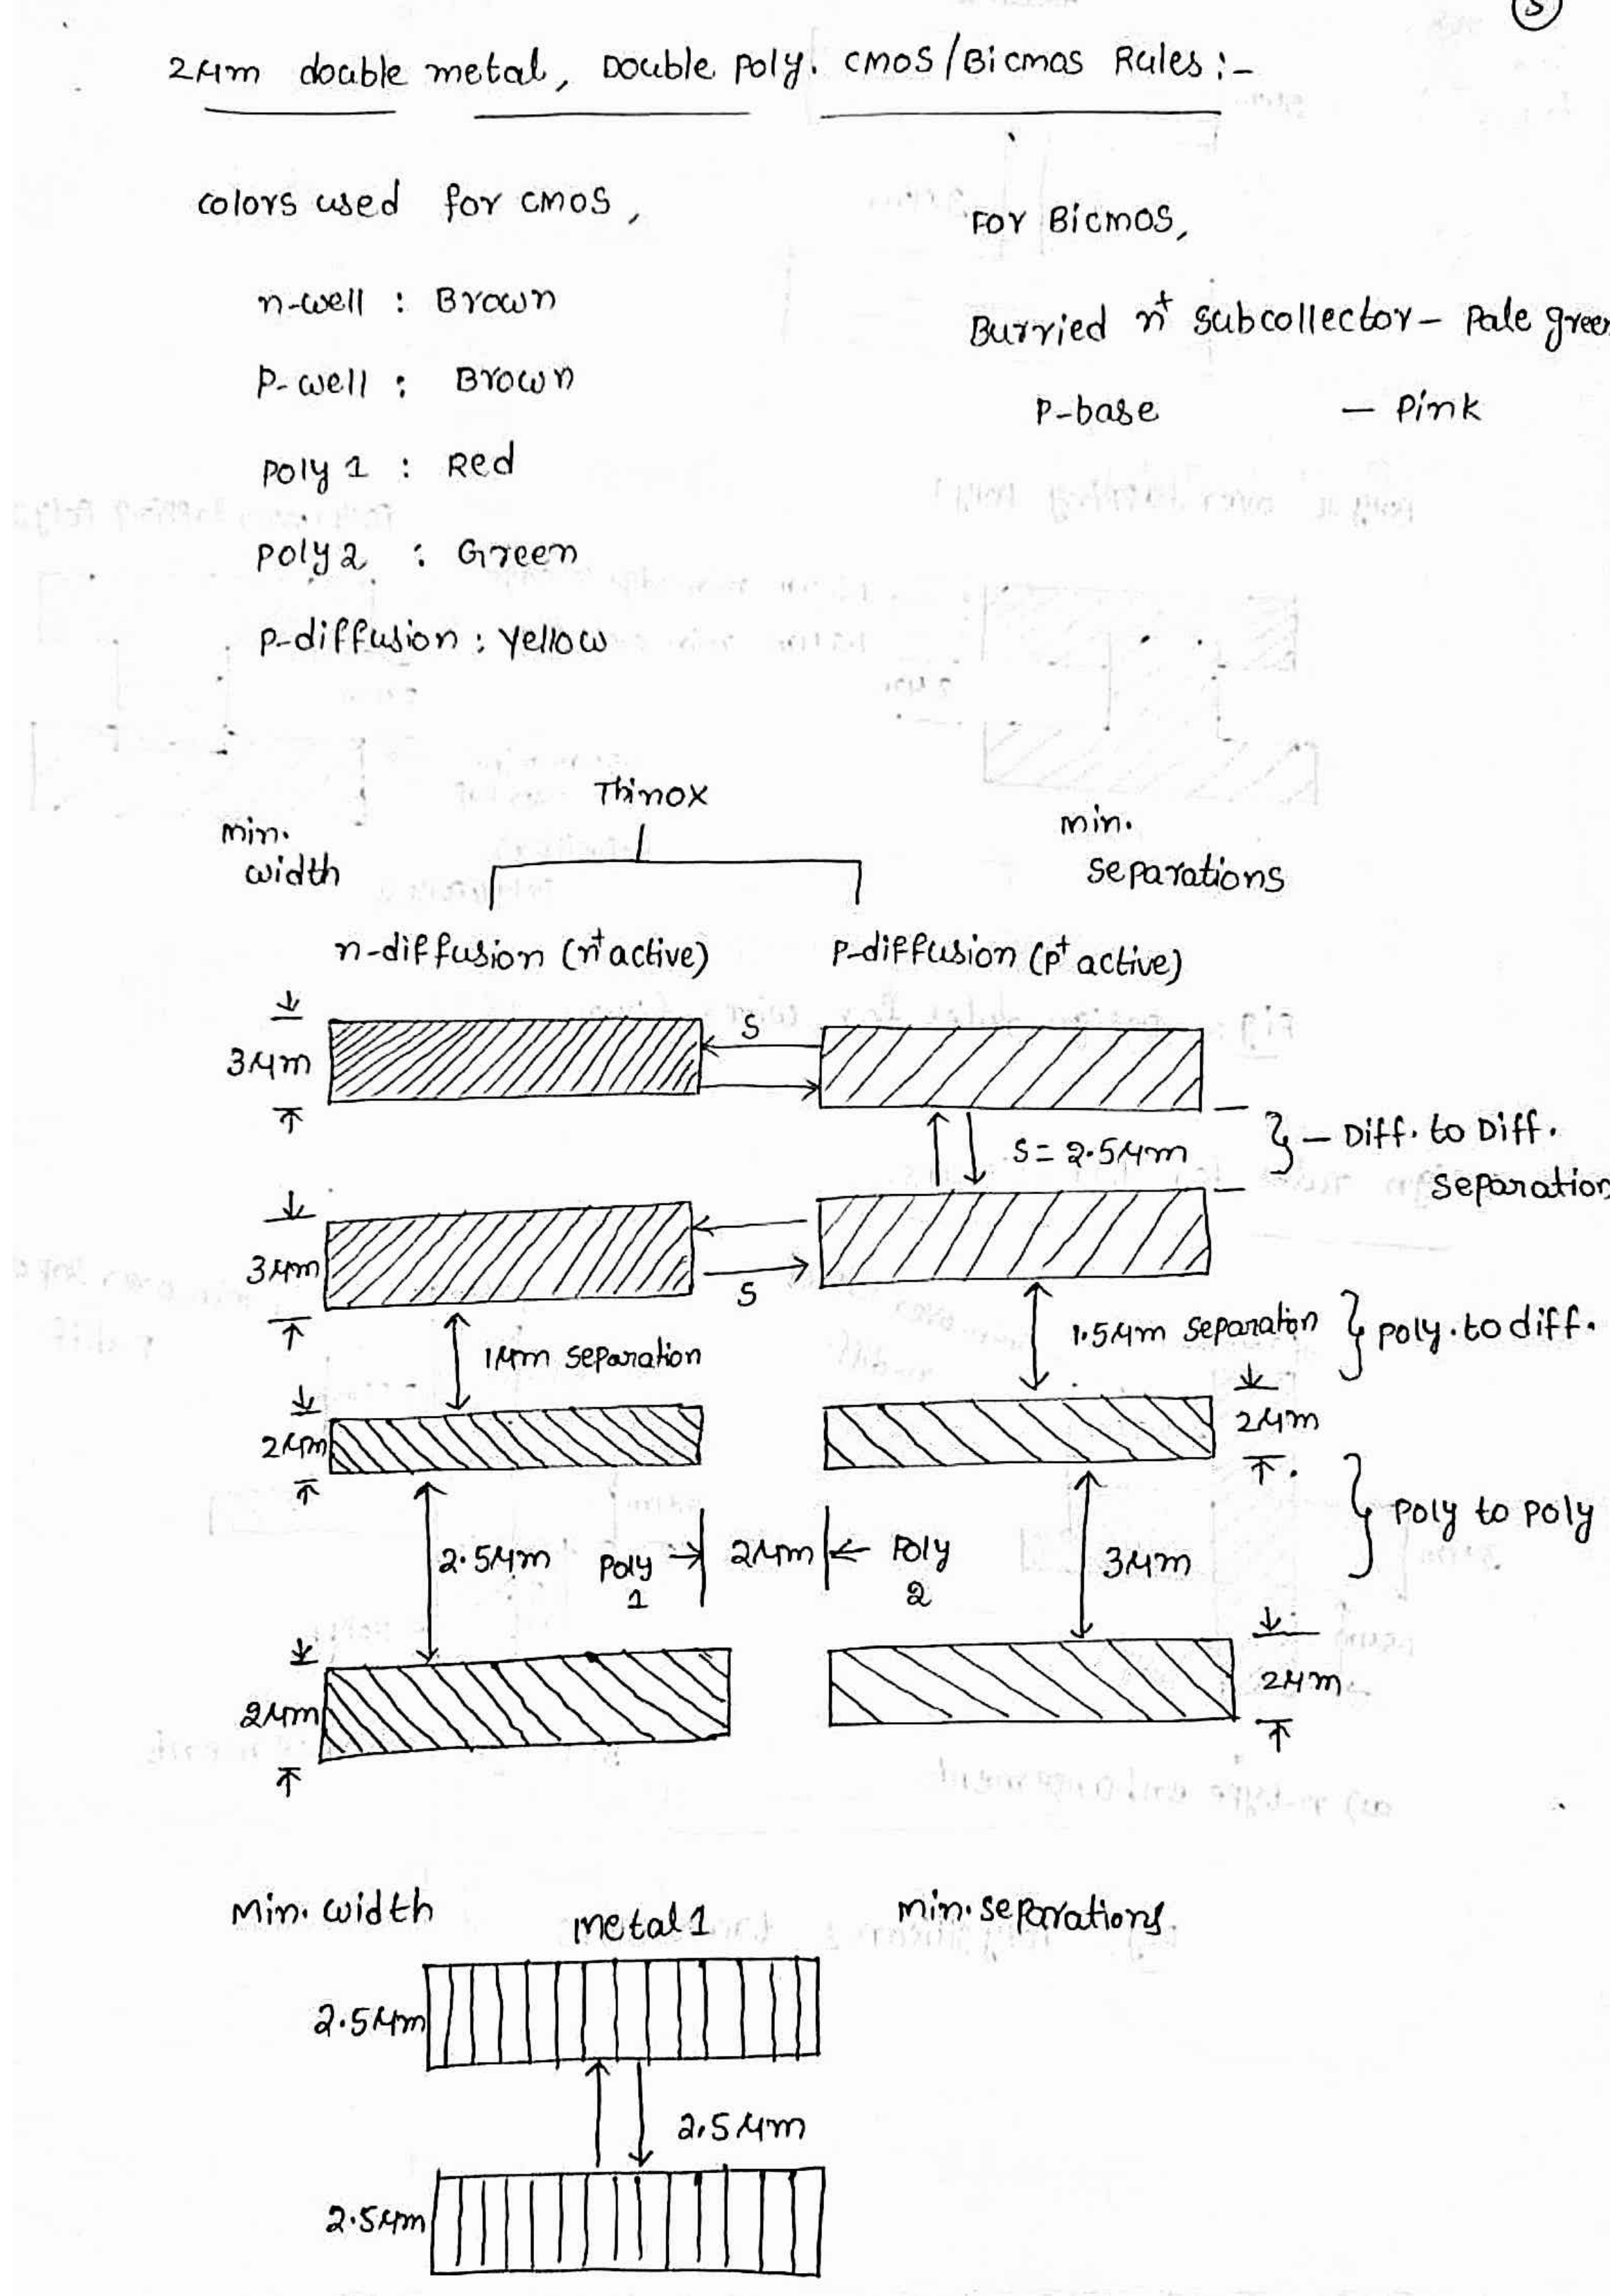 5
2μm double metal, Double poly. CMOS/BiCMOS Rules :-
colors used for CMOS,
n-well : Brown
P-well : Brown
poly 1 : Red
poly 2 : Green
p-diffusion : yellow
For BiCMOS,
Burried n+ subcollector - Pale green
P-base - Pink
Thinox
min.
width
min.
separations
n-diffusion (n+ active)
P-diffusion (p+ active)
3μm
S
S = 2.5μm
} - Diff. to Diff.
separation
3μm
S
1μm separation
1.5μm separation
} poly. to diff.
2μm
2μm
2.5μm
Poly
1
2μm
Poly
2
3μm
} Poly to poly
2μm
2μm
Min. width
metal 1
min. separations
2.5μm
2.5μm
2.5μm